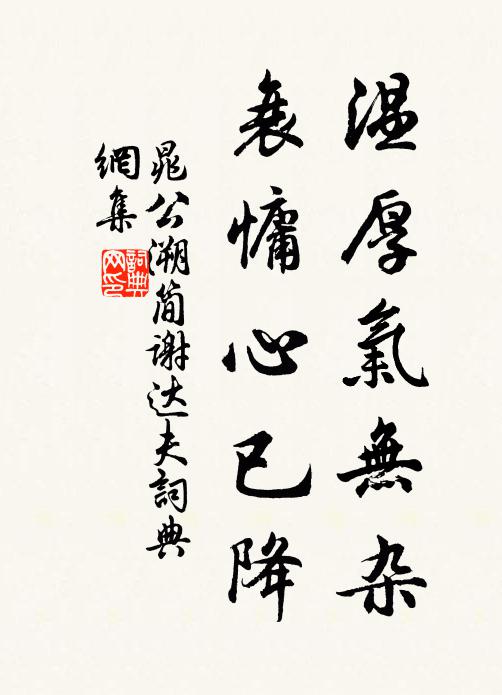 温厚氣無杂
衰慵心已降
晁公溯简謝达夫詞典
網集
詞典
网印